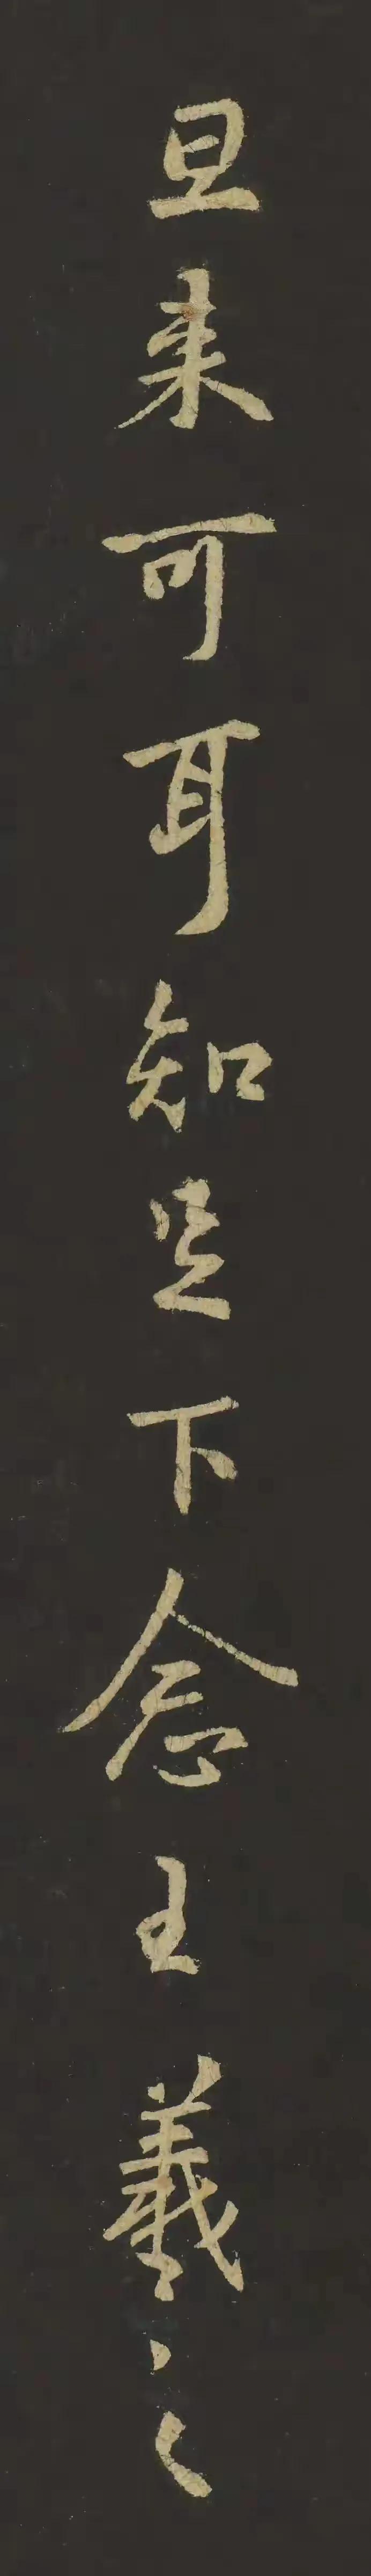 旦来可耳知足下念王羲之